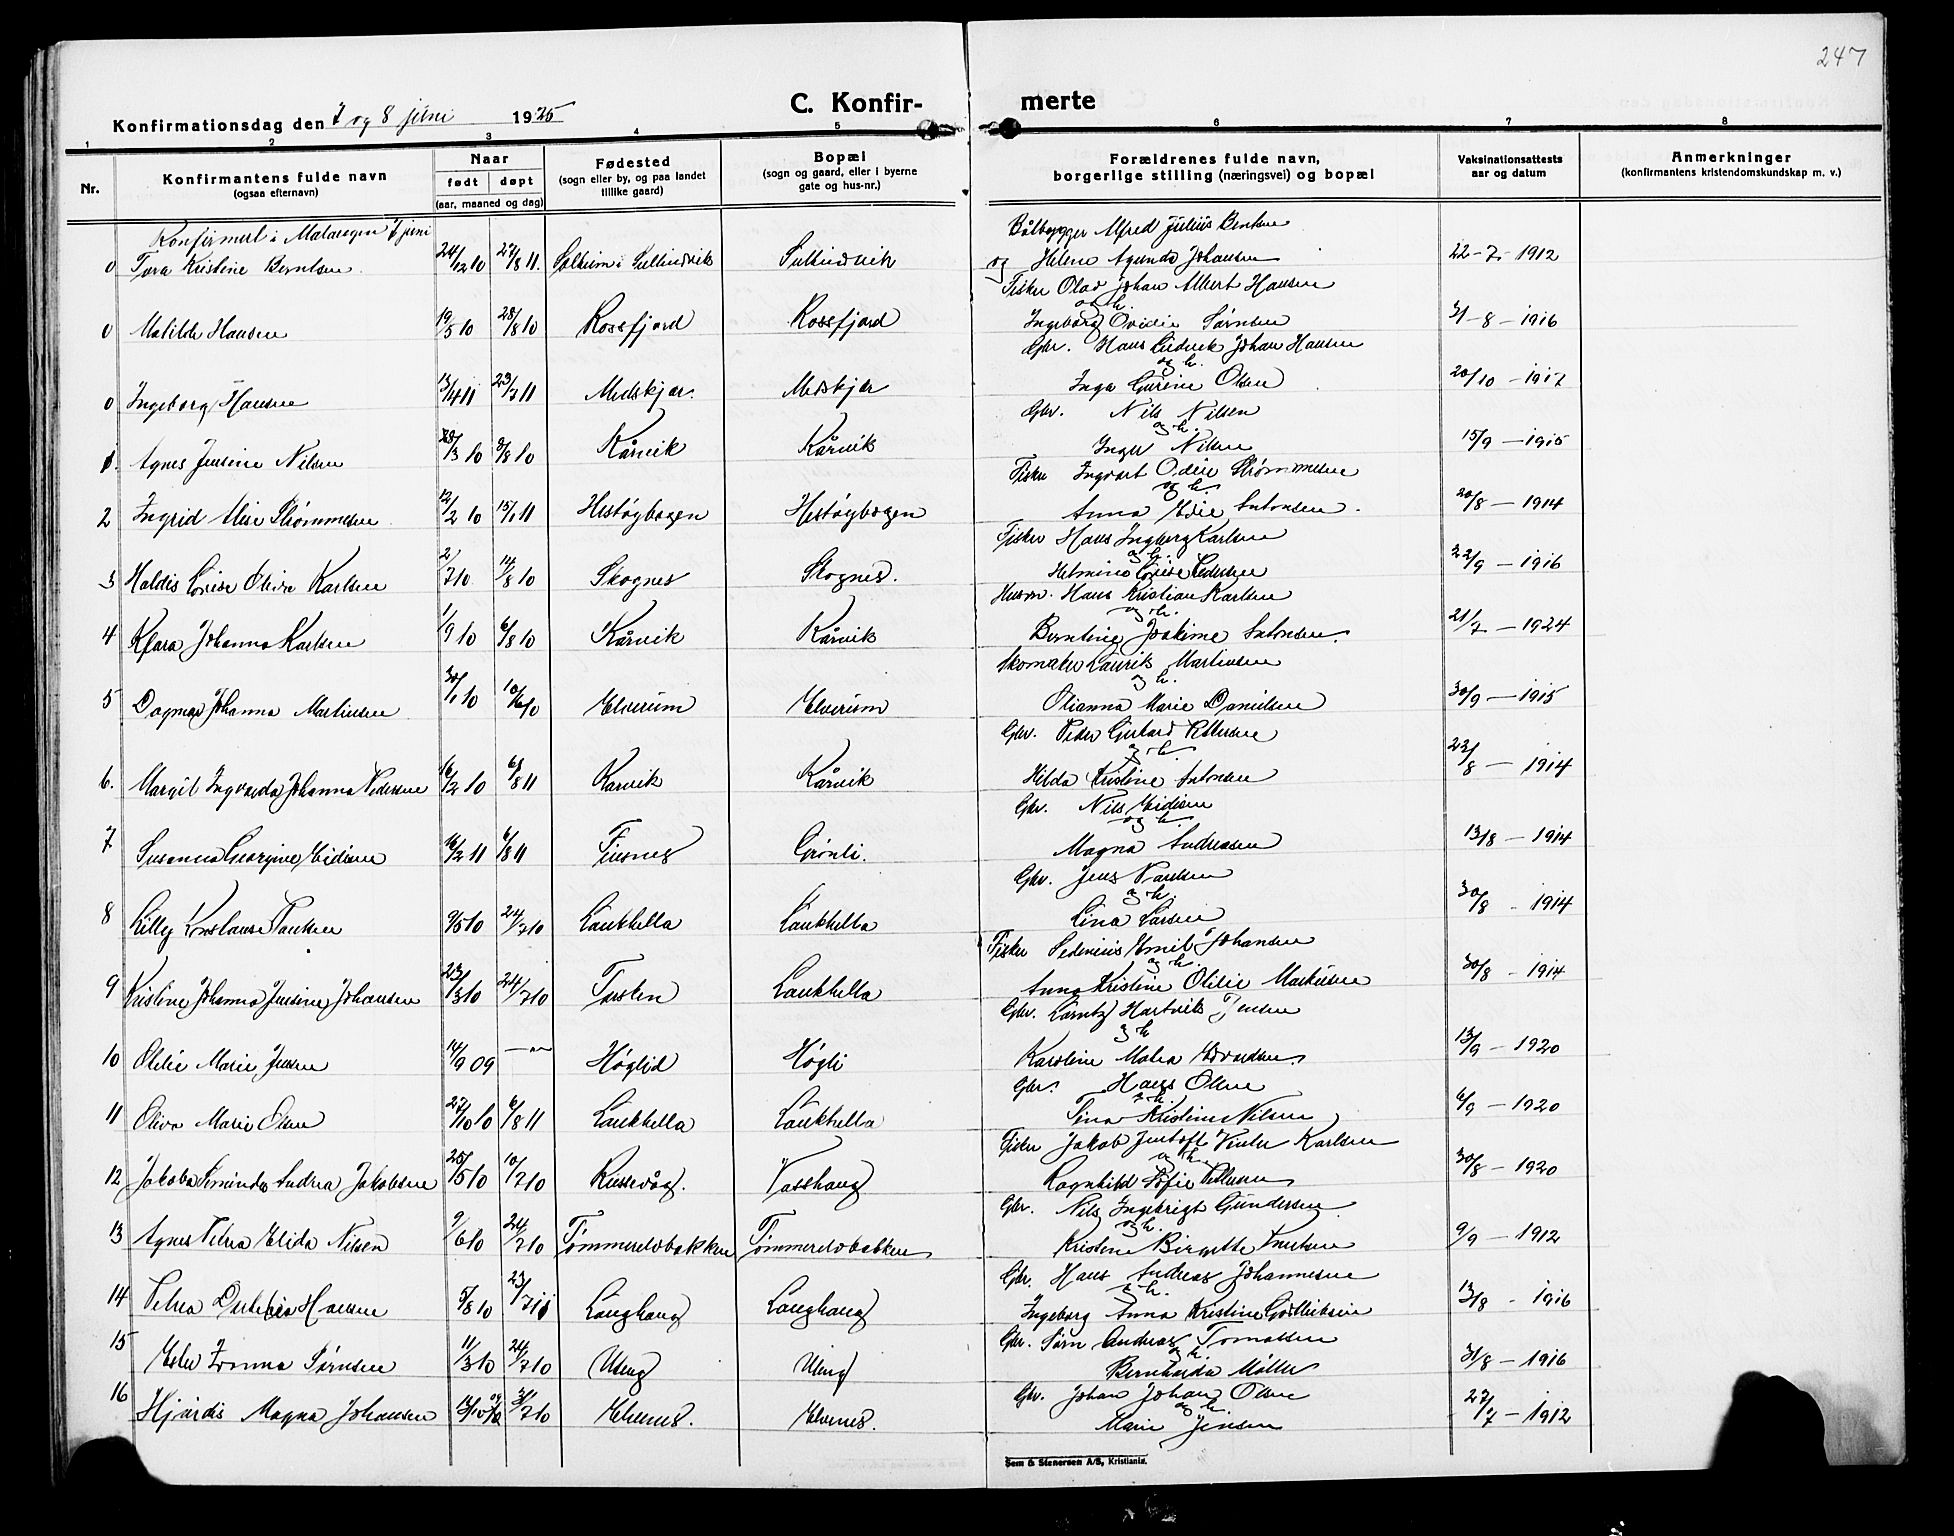 247
C. Konfir- merte
Konfirmationsdag den 7 og 8 juni 1925
1 2 3 4 5 6 7 8
Nr.
Konfirmantens fulde navn
(ogsaa efternavn)
Naar
født døpt
(aar, maaned og dag)
Fødested
(sogn eller by, og paa landet
tillike gaard)
Bopæl
(sogn og gaard, eller i byerne
gate og hus-nr.)
Forældrenes fulde navn,
borgerlige stilling (næringsvei) og bopæl
Vaksinationsattests
aar og datum
Anmerkninger
(konfirmantens kristendomskundskap m. v.)
Konfirmert i Malangen 7 juni
Båtbygger Alfred Julius Berntsen
0 Tora Kristine Berntsen 24/12 10 27/8 11. Solheim i Sultindvik Sultindvik og Helene Agunda Johansen 22-7-1912
Fisker Olav Johan Albert Hansen
og h.
0 Matilde Hansen 19/5 10 28/8 10 Rossfjord Rossfjord Ingeborg Ovidie Sørnsen 31-8-1916
Gbr. Hans Johan Hansen
og h.
0 Ingeborg Hansen 13/4 11 23/7 11 Medskjer. Medskjer Inga Gurine Olsen 20/10-1917
Gbr. Nils Nilsen
og h.
1. Agnes Jensine Nilsen 28/3 10 8/8 10 Kårvik Kårvik Inger Nilsen 15/9-1915
Fisker Ingvart Odin Strømmesen
og h.
2 Ingrid Alise Strømmesen 12/2 10 15/1 11 Hestøybogen Hestøybogen Anna Edie Antonsen. 20/8-1914
Fisker Hans Ingberg Karlsen
og h.
3 Haldis Lovise Olive Karlsen 2/7 10 14/8 10 Skognes Skognes. Helmine Lovise Pedersen 22/9-1916
Husm. Hans Kristian Karlsen
og h.
4 Klara Johanna Karlsen 1/9 10 6/8 10 Kårvik Kårvik Berntine Joakime Antonsen. 21/7-1924
Skomaker Laurits Martinsen
og h.
5 Dagmar Johanna Martinsen 30/1 10 10/6 10 Elverum Elverum Olianna Marie Danielsen 30/9-1915
Gbr. Peder Gerhard Pettersen
og h.
6. Margit Ingvarda Johanna Pedersen 16/2 10 6/8 11 Karvik Kårvik Hilda Kristine Antonsen 22/8-1914
Gbr. Nils Eidisen
og h.
7 Susanna Georgine Eidisen 16/2 11 6/8 11 Finsnes Grønli. Magna Andreasen 13/8-1914
Gbr. Jens Paulsen
og h.
8 Lilly Konstanse Paulsen 9/5 10 24/7 10 Laukhella Laukhella Lina Larsen 30/8-1914
Fisker Pedenius Emil Johansen
og h.
9 Kristine Johanna Jensine Johansen 23/3 10 24/7 10 Tusten Laukhella Anna Kristine Otilie Markusen 30/8-1914
Gbr. Lorntz Hartvik Jensen
og h
10 Otilie Marie Jensen 14/9 09 —"— Høglid Høgli Karoline Malea Edvardsen 13/9-1920
Gbr. Hans Olsen
og h.
11 Oliva Marie Olsen 27/10 10 6/8 11 Laukhella Laukhella Tina Kristine Nilsen 6/9-1920
Fisker Jakob Jentoft Vinter Karlsen
og h.
12 Jakoba Andrea Jakobsen 25/5 10 10/7 10 Russevåg. Vasshaug Ragnhild Sofie Pettersen 30/8-1920
Gbr. Nils Ingebrigt Gundersen
og h.
13 Agnes Petra Elida Nilsen 9/6 10 24/7 10 Tømmerelvbakken Tømmerelvbakken Kristine Birgitte Knutsen 9/9-1912
Gbr. Hans Andreas Johannesen
og h.
14 Petra Hansen 5/8 10 23/7 11 Langhaug Langhaug Ingeborg Anna Kristine Godtliksen 13/8-1916
Gbr. Sørn Andreas Tomassen
og h.
15 Ester Ivanna Sørnsen 11/3 10 24/7 10 Uteng Uteng Bernharda Møller 31/8-1916
Gbr. Johan Johan Olsen
og h.
16 Hjørdis Magna Johansen 31/7 10 Elvenes. Elvenes. Marie Jensen 27/7-1912
Sem & Stenersen A/S, Kristiania.